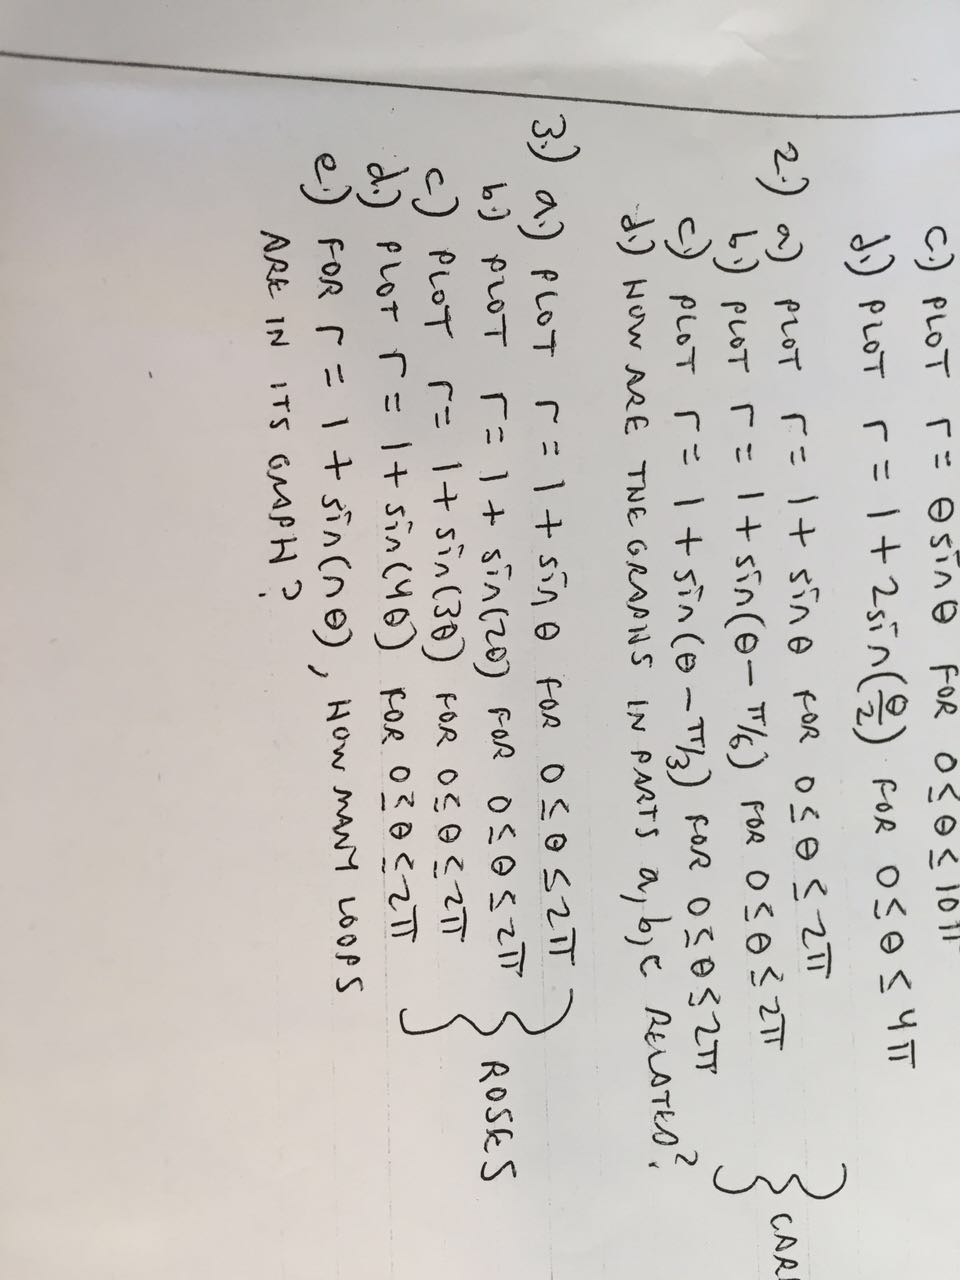 c.) PLOT r = θ sin θ FOR 0 ≤ θ ≤ 10π
d.) PLOT r = 1 + 2 sin(θ/2) FOR 0 ≤ θ ≤ 4π
2.) a.) PLOT r = 1 + sin θ FOR 0 ≤ θ ≤ 2π
b.) PLOT r = 1 + sin(θ - π/6) FOR 0 ≤ θ ≤ 2π
c.) PLOT r = 1 + sin(θ - π/3) FOR 0 ≤ θ ≤ 2π
d.) HOW ARE THE GRAPHS IN PARTS a, b, c RELATED?
3.) a.) PLOT r = 1 + sin θ FOR 0 ≤ θ ≤ 2π
b.) PLOT r = 1 + sin(2θ) FOR 0 ≤ θ ≤ 2π
c.) PLOT r = 1 + sin(3θ) FOR 0 ≤ θ ≤ 2π
d.) PLOT r = 1 + sin(4θ) FOR 0 ≤ θ ≤ 2π
ROSES
e.) FOR r = 1 + sin(nθ), HOW MANY LOOPS
ARE IN ITS GRAPH?